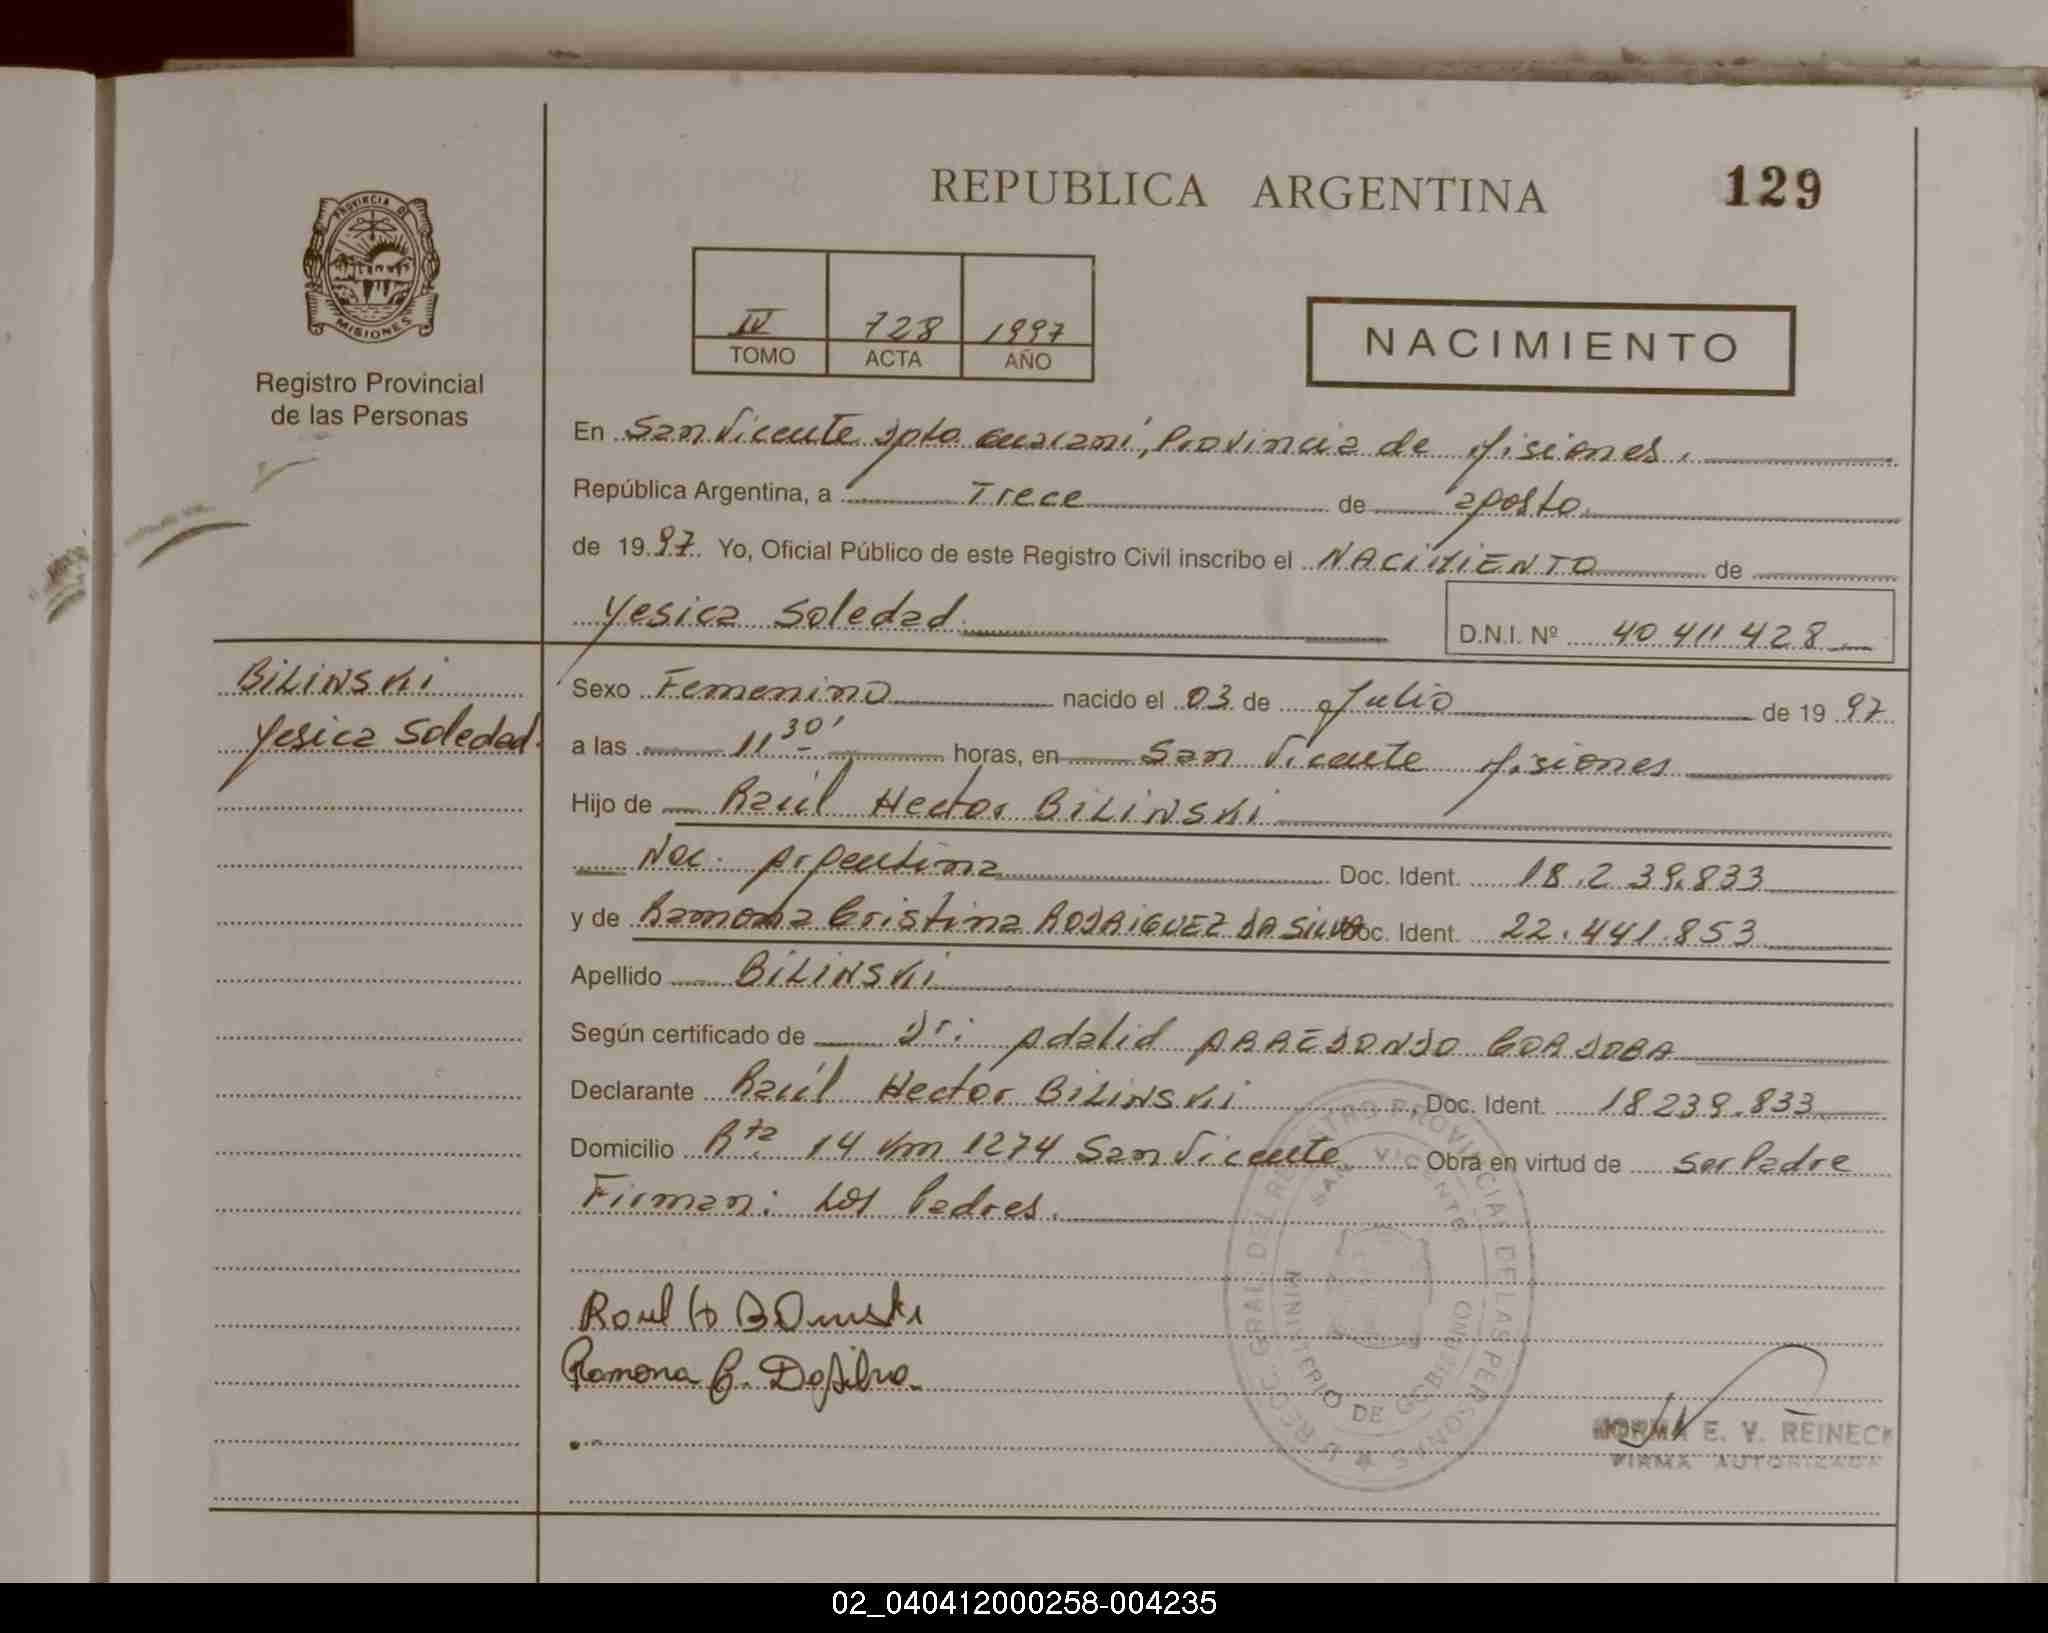 REPUBLICA ARGENTINA
129
PROVINCIA DE
MISIONES
Registro Provincial
de las Personas
IV 728 1997
TOMO ACTA AÑO
NACIMIENTO
En San Vicente Dpto Guaraní, Provincia de Misiones.
República Argentina, a Trece de agosto
de 1997. Yo, Oficial Público de este Registro Civil inscribo el NACIMIENTO de
Yesica Soledad
D.N.I. Nº 40 411 428
BILINSKI
Yesica Soledad.
Sexo Femenino nacido el 03 de Julio de 1997
a las 11 30' horas, en San Vicente Misiones
Hijo de Raúl Hector BILINSKI
Nac. Argentina Doc. Ident. 18.239.833
y de Ramona Cristina RODRIGUEZ DA SILVA Doc. Ident. 22.441.853
Apellido BILINSKI
Según certificado de Dr: Adalid ARREDONDO CORDOBA
Declarante Raúl Hector BILINSKI, Doc. Ident. 18239.833
Domicilio Rta 14 Km 1274 San Vicente Obra en virtud de ser Padre
Firman: Los Padres.
DIRECC. GRAL. DEL REGISTRO PROVINCIAL DE LAS PERSONAS
SAN VICENTE
MINISTERIO DE GOBIERNO
Raul H Bilinski
Ramona C. Dasilva.
NORMA E. V. REINECK
FIRMA AUTORIZADA
02_040412000258-004235